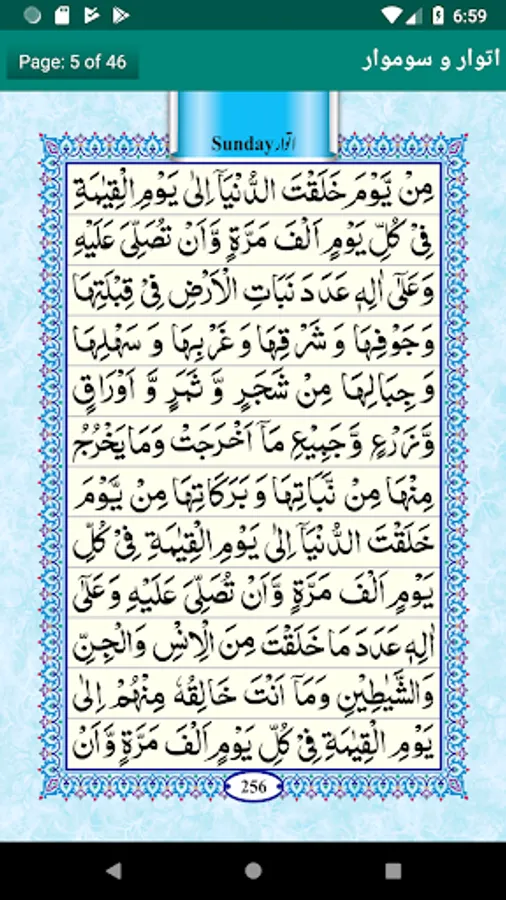 6:59
Page: 5 of 46
اتوار و سوموار
Sunday اتوار
مِنْ يَّوْمَ خَلَقْتَ الدُّنْيَآ اِلٰى يَوْمِ الْقِيٰمَةِ
فِيْ كُلِّ يَوْمٍ اَلْفَ مَرَّةٍ وَّاَنْ تُصَلِّىَ عَلَيْهِ
وَعَلٰٓى اٰلِهٖ عَدَدَ نَبَاتِ الْاَرْضِ فِيْ قِبْلَتِهَا
وَجَوْفِهَا وَ شَرْقِهَا وَ غَرْبِهَا وَ سَهْلِهَا
وَ جِبَالِهَا مِنْ شَجَرٍ وَّ ثَمَرٍ وَّ اَوْرَاقٍ
وَّزَرْعٍ وَّجَمِيْعِ مَآ اَخْرَجَتْ وَمَا يَخْرُجُ
مِنْهَا مِنْ نَّبَاتِهَا وَ بَرَكَاتِهَا مِنْ يَّوْمَ
خَلَقْتَ الدُّنْيَآ اِلٰى يَوْمِ الْقِيٰمَةِ فِيْ كُلِّ
يَوْمٍ اَلْفَ مَرَّةٍ وَّاَنْ تُصَلِّىَ عَلَيْهِ وَعَلٰٓى
اٰلِهٖ عَدَدَ مَا خَلَقْتَ مِنَ الْاِنْسِ وَالْجِنِّ
وَالشَّيٰطِيْنِ وَمَآ اَنْتَ خَالِقُهٗ مِنْهُمْ اِلٰى
يَوْمِ الْقِيٰمَةِ فِيْ كُلِّ يَوْمٍ اَلْفَ مَرَّةٍ وَّاَنْ
256